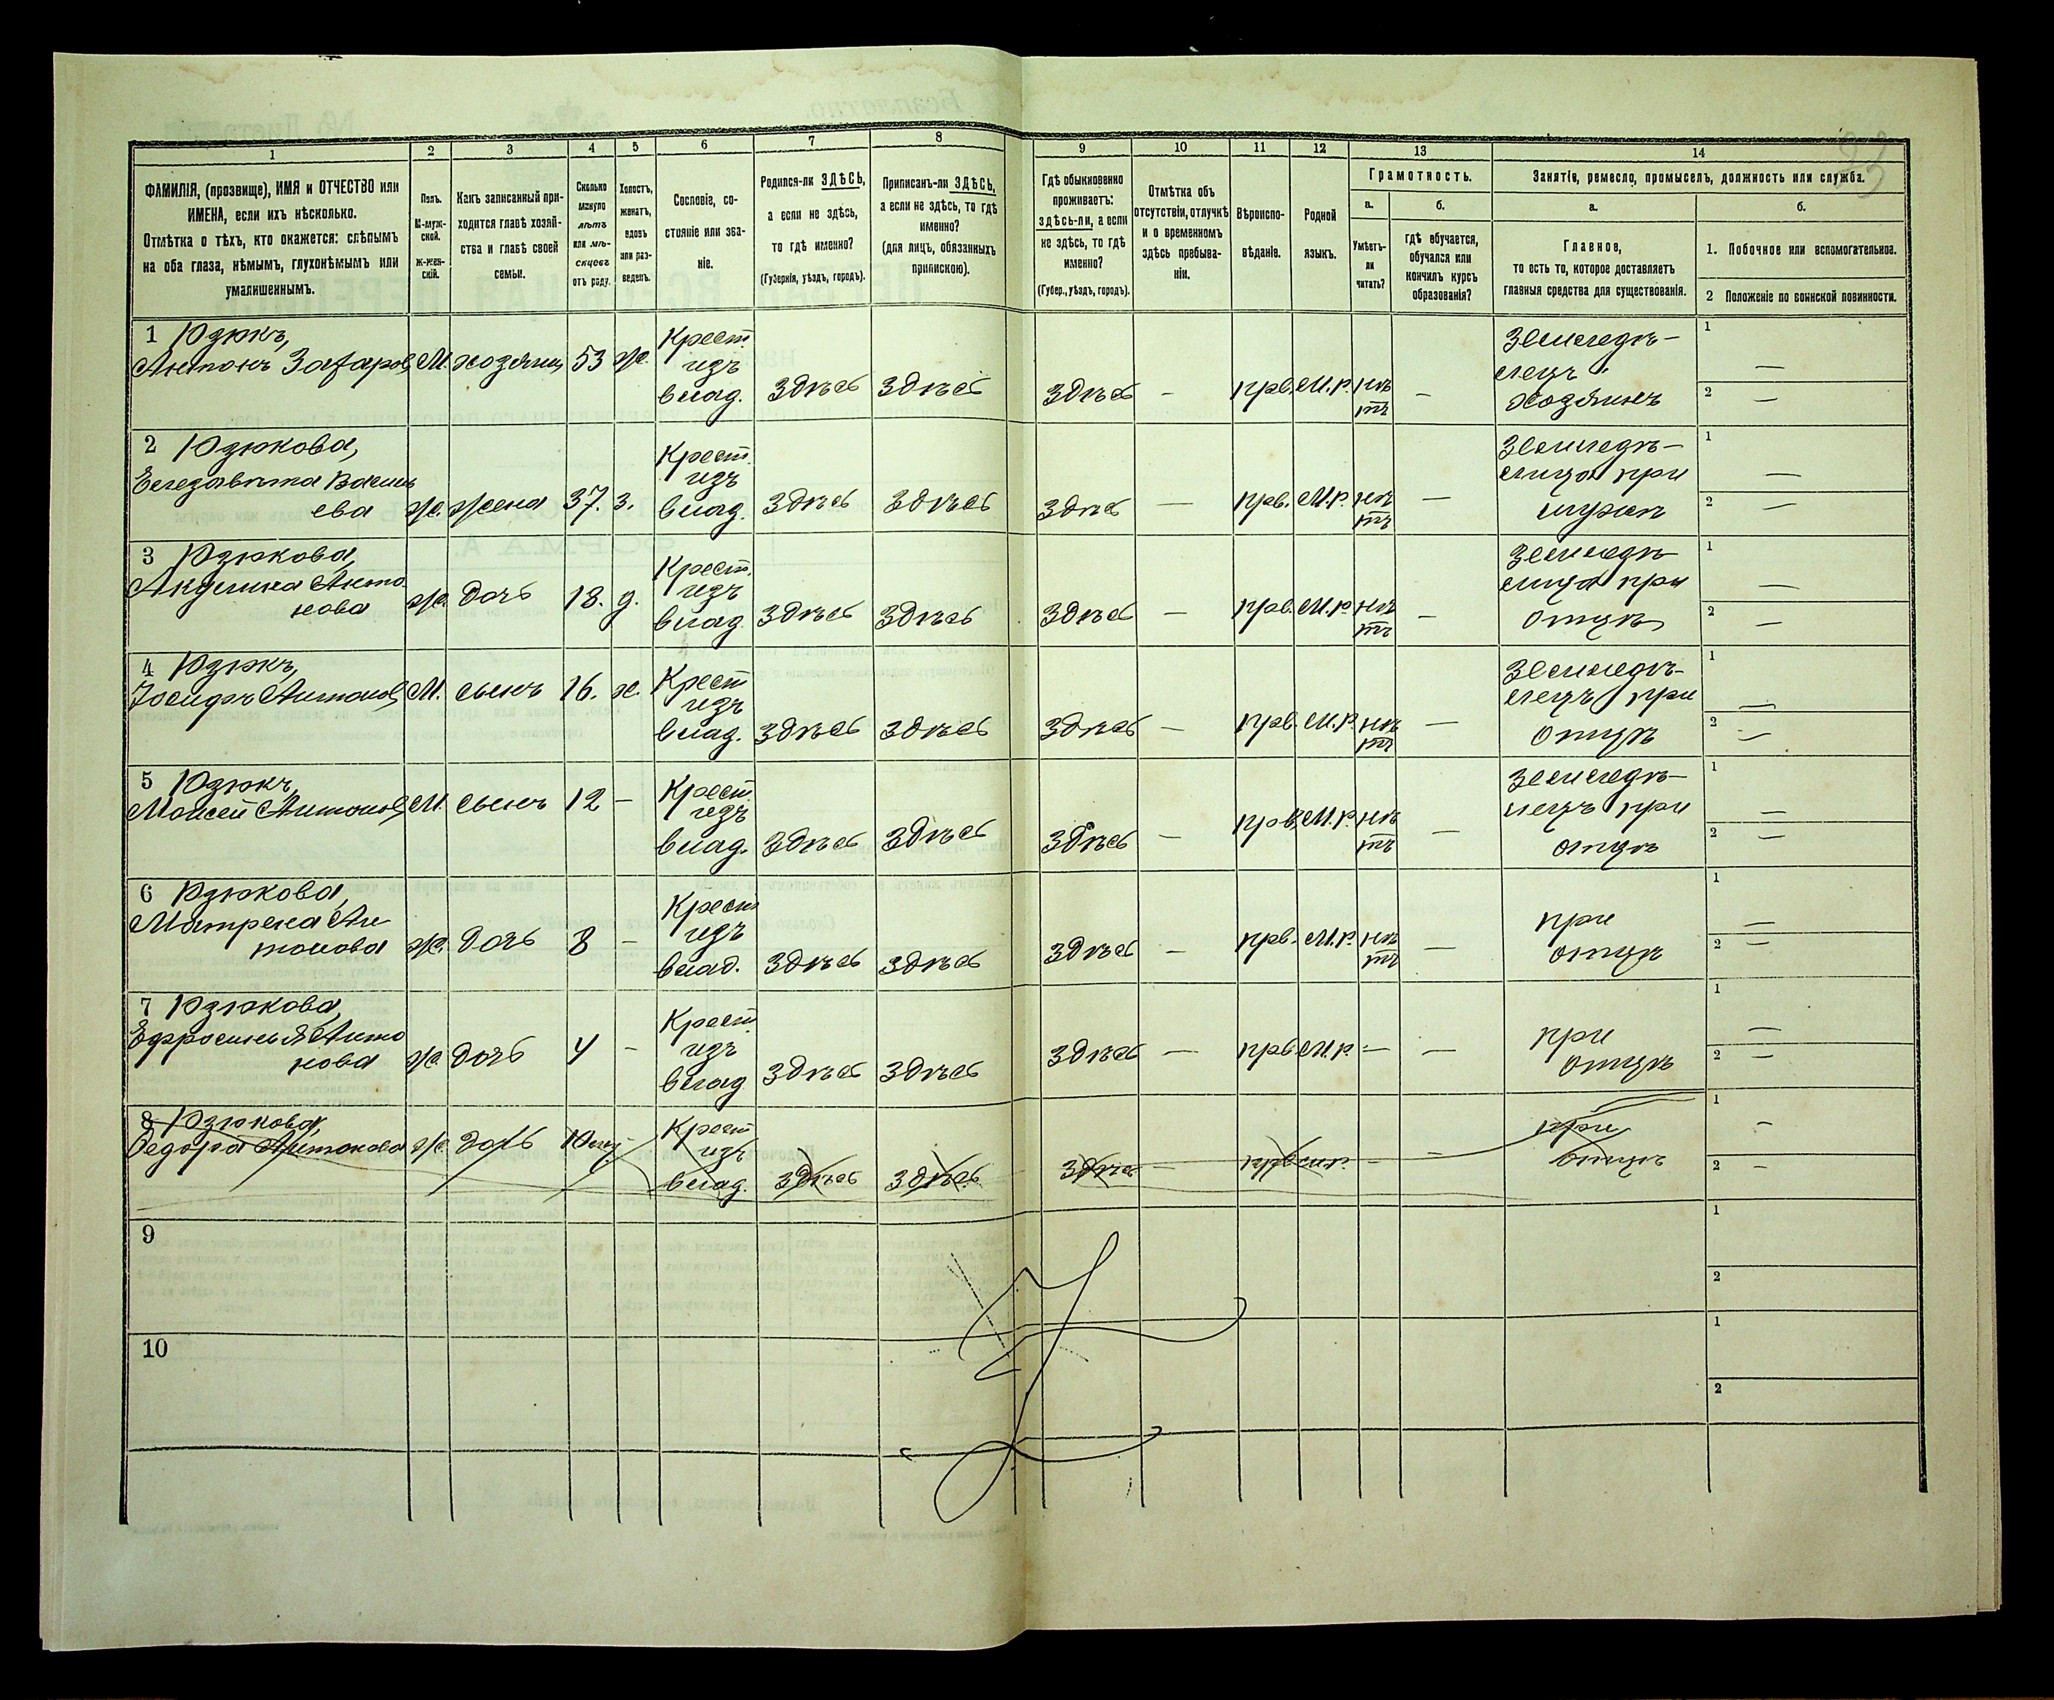 1 2 3 4 5 6 7 8 9 10 11 12 13 14
ФАМИЛІЯ, (прозвище), ИМЯ и ОТЧЕСТВО или
ИМЕНА, если ихъ нѣсколько.
Отмѣтка о тѣхъ, кто окажется: слѣпымъ
на оба глаза, нѣмымъ, глухонѣмымъ или
умалишеннымъ.
Полъ.
М-муж-
ской.
Ж-жен-
скій.
Какъ записанный при-
ходится главѣ хозяй-
ства и главѣ своей
семьи.
Сколько
минуло
лѣтъ
или мѣ-
сяцевъ
отъ роду.
Холостъ,
женатъ,
вдовъ
или раз-
веденъ.
Сословіе, со-
стояніе или зва-
ніе.
Родился-ли ЗДѢСЬ,
а если не здѣсь,
то гдѣ именно?
(Губернія, уѣздъ, городъ).
Приписанъ-ли ЗДѢСЬ,
а если не здѣсь, то гдѣ
именно?
(для лицъ, обязанныхъ
припискою).
Гдѣ обыкновенно
проживаетъ:
здѣсь-ли, а если
не здѣсь, то гдѣ
именно?
(Губер., уѣздъ, городъ).
Отмѣтка объ
отсутствіи, отлучкѣ
и о временномъ
здѣсь пребыва-
ніи.
Вѣроиспо-
вѣданіе.
Родной
языкъ.
Грамотность.
а.
Умѣетъ-
ли
читать?
б.
гдѣ обучается,
обучался или
кончилъ курсъ
образованія?
Занятіе, ремесло, промыселъ, должность или служба.
а.
Главное,
то есть то, которое доставляетъ
главныя средства для существованія.
б.
1. Побочное или вспомогательное.
2 Положеніе по воинской повинности.
1 Юзюкъ,
Антонъ Захаровъ
М. хозяинъ 53 ж.
Крест.
изъ
влад.
здѣсь здѣсь здѣсь — прав. М.р. нѣ
тъ —
Земледѣ-
лецъ
хозяинъ
1 —
2 —
2 Юзюкова,
Елезавѣта Василь
ева
ж. жена 37. з.
Крест.
изъ
влад.
здѣсь здѣсь здѣсь — прав. М.р. нѣ
тъ —
Земледѣ-
лица при
мужѣ
1 —
2 —
3 Юзюкова,
Акулина Анто
нова
ж. дочь 18. д.
Крест.
изъ
влад.
здѣсь здѣсь здѣсь — прав. М.р. нѣ
тъ —
Земледѣ-
лица при
отцѣ
1 —
2 —
4 Юзюкъ,
Іосифъ Антоновъ
М. сынъ 16. х.
Крест
изъ
влад.
здѣсь здѣсь здѣсь — прав. М.р. нѣ
тъ —
Земледѣ-
лецъ при
отцѣ
1 —
2 —
5 Юзюкъ,
Моисей Антоновъ
М. сынъ 12 —
Крест.
изъ
влад.
здѣсь здѣсь здѣсь — прав. М.р. нѣ
тъ —
Земледѣ-
лецъ при
отцѣ
1 —
2 —
6 Юзюкова,
Матрена Ан
тонова
ж. дочь 8 —
Крест.
изъ
влад.
здѣсь здѣсь здѣсь — прав. М.р. нѣ
тъ —
при
отцѣ
1 —
2 —
7 Юзюкова,
Ефросинья Анто
нова
ж. дочь 4 —
Крест.
изъ
влад
здѣсь здѣсь здѣсь — прав М.р. — —
при
отцѣ
1 —
2 —
8 Юзюкова,
Ѳедора Антонова
ж. дочь
Крест
изъ
влад.
здѣсь здѣсь здѣсь — прав М.р. — —
при
отцѣ
1 —
2 —
9
1
2
10
1
2